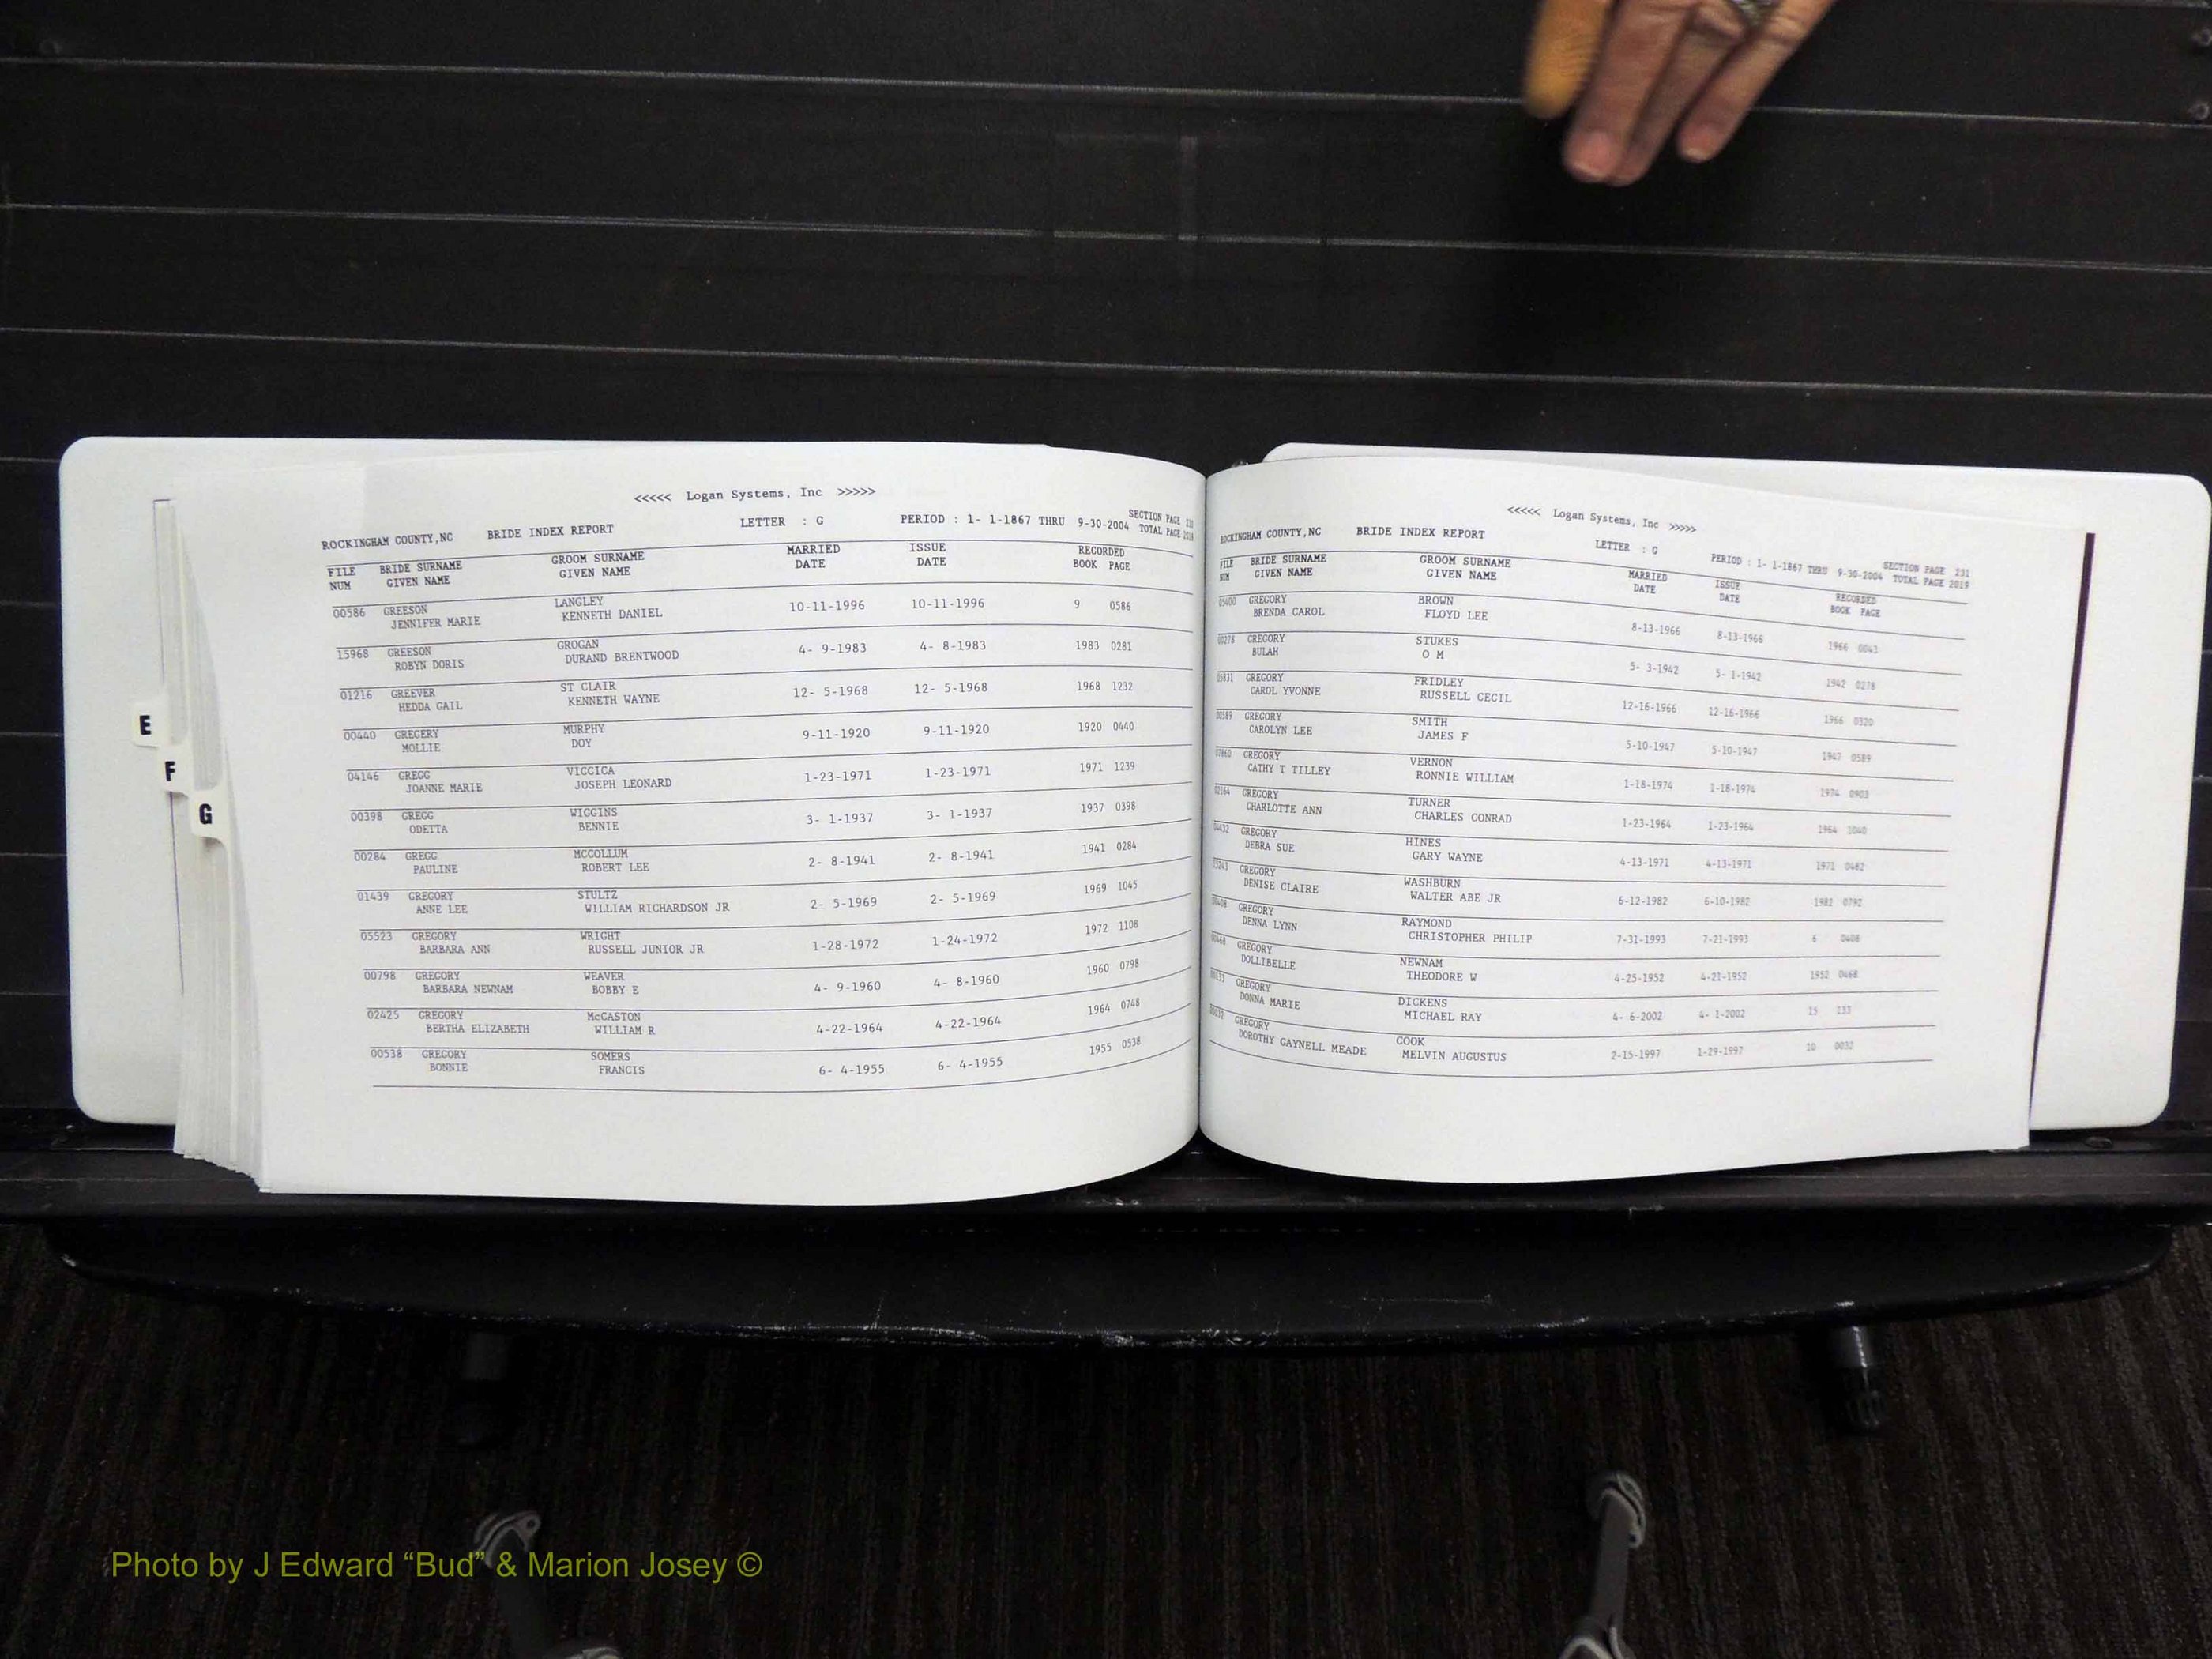 <<<<< Logan Systems, Inc >>>>>
ROCKINGHAM COUNTY,NC BRIDE INDEX REPORT LETTER : G PERIOD : 1- 1-1867 THRU 9-30-2004 SECTION PAGE
TOTAL PAGE
FILE BRIDE SURNAME GROOM SURNAME MARRIED ISSUE RECORDED
NUM GIVEN NAME GIVEN NAME DATE DATE BOOK PAGE
00586 GREESON LANGLEY 10-11-1996 10-11-1996 9 0586
JENNIFER MARIE KENNETH DANIEL
15968 GREESON GROGAN 4- 9-1983 4- 8-1983 1983 0281
ROBYN DORIS DURAND BRENTWOOD
01216 GREEVER ST CLAIR 12- 5-1968 12- 5-1968 1968 1232
HEDDA GAIL KENNETH WAYNE
00440 GREGERY MURPHY 9-11-1920 9-11-1920 1920 0440
MOLLIE DOY
04146 GREGG VICCICA 1-23-1971 1-23-1971 1971 1239
JOANNE MARIE JOSEPH LEONARD
00398 GREGG WIGGINS 3- 1-1937 3- 1-1937 1937 0398
ODETTA BENNIE
00284 GREGG MCCOLLUM 2- 8-1941 2- 8-1941 1941 0284
PAULINE ROBERT LEE
01439 GREGORY STULTZ 2- 5-1969 2- 5-1969 1969 1045
ANNE LEE WILLIAM RICHARDSON JR
05523 GREGORY WRIGHT 1-28-1972 1-24-1972 1972 1108
BARBARA ANN RUSSELL JUNIOR JR
00798 GREGORY WEAVER 4- 9-1960 4- 8-1960 1960 0798
BARBARA NEWNAM BOBBY E
02425 GREGORY McCASTON 4-22-1964 4-22-1964 1964 0748
BERTHA ELIZABETH WILLIAM R
00538 GREGORY SOMERS 6- 4-1955 6- 4-1955 1955 0538
BONNIE FRANCIS
E
F
G
<<<<< Logan Systems, Inc >>>>>
ROCKINGHAM COUNTY,NC BRIDE INDEX REPORT LETTER : G PERIOD : 1- 1-1867 THRU 9-30-2004 SECTION PAGE 231
TOTAL PAGE 2019
FILE BRIDE SURNAME GROOM SURNAME MARRIED ISSUE RECORDED
NUM GIVEN NAME GIVEN NAME DATE DATE BOOK PAGE
05400 GREGORY BROWN 8-13-1966 8-13-1966 1966 0043
BRENDA CAROL FLOYD LEE
00278 GREGORY STUKES 5- 3-1942 5- 1-1942 1942 0278
BULAH O M
05831 GREGORY FRIDLEY 12-16-1966 12-16-1966 1966 0320
CAROL YVONNE RUSSELL CECIL
00589 GREGORY SMITH 5-10-1947 5-10-1947 1947 0589
CAROLYN LEE JAMES F
07860 GREGORY VERNON 1-18-1974 1-18-1974 1974 0903
CATHY T TILLEY RONNIE WILLIAM
02164 GREGORY TURNER 1-23-1964 1-23-1964 1964 1040
CHARLOTTE ANN CHARLES CONRAD
04432 GREGORY HINES 4-13-1971 4-13-1971 1971 0482
DEBRA SUE GARY WAYNE
GREGORY WASHBURN 6-12-1982 6-10-1982 1982 0792
DENISE CLAIRE WALTER ABE JR
00408 GREGORY RAYMOND 7-31-1993 7-21-1993 6 0408
DENNA LYNN CHRISTOPHER PHILIP
00468 GREGORY NEWNAM 4-25-1952 4-21-1952 1952 0468
DOLLIBELLE THEODORE W
GREGORY DICKENS 4- 6-2002 4- 1-2002 15 233
DONNA MARIE MICHAEL RAY
00032 GREGORY COOK 2-15-1997 1-29-1997 10 0032
DOROTHY GAYNELL MEADE MELVIN AUGUSTUS
Photo by J Edward “Bud” & Marion Josey ©